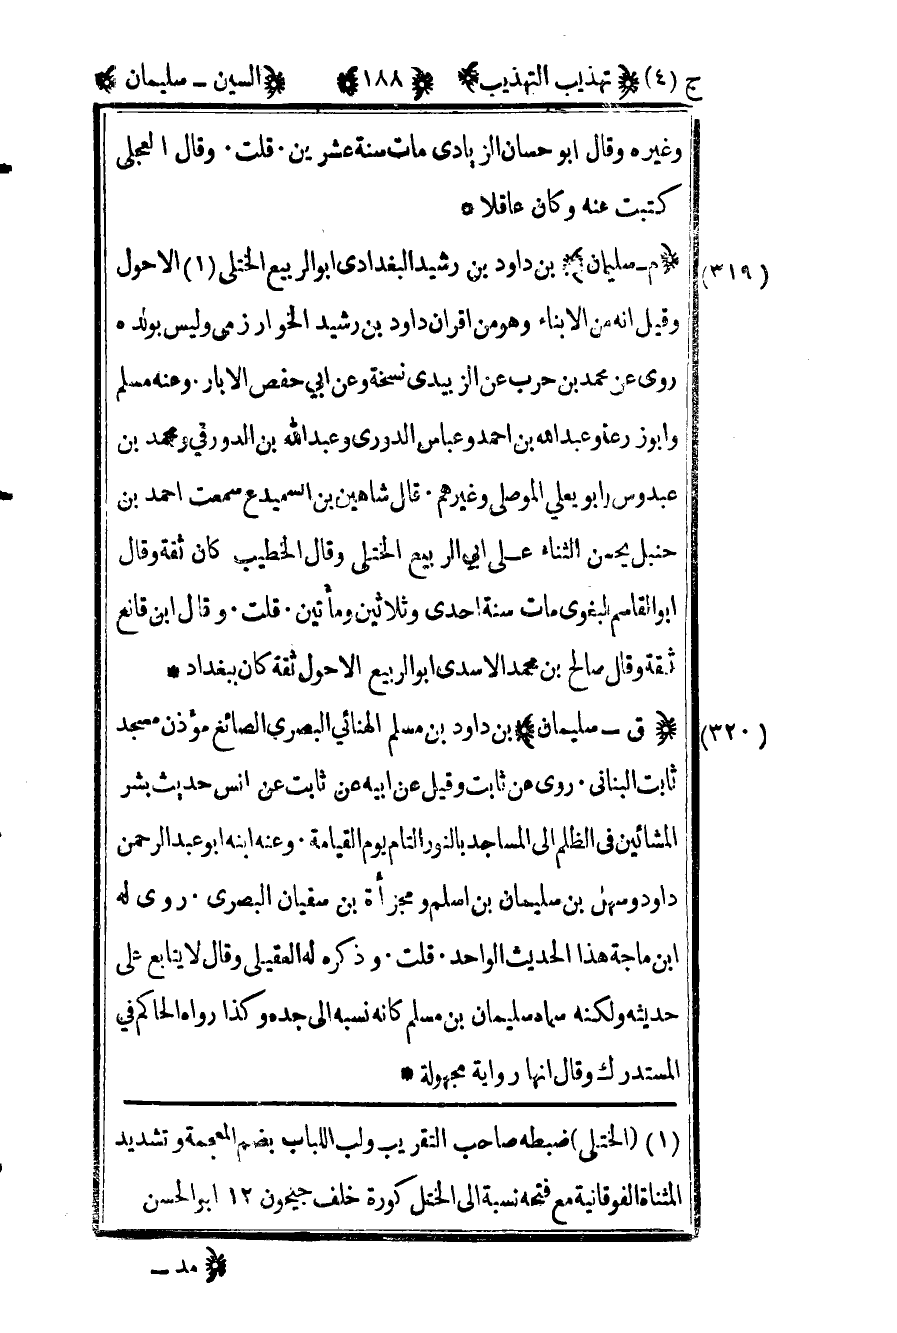 ج (٤) ﴿ تهذيب التهذيب ﴾ ﴿ ١٨٨ ﴾ ﴿ السين ـ سليمان ﴾
وغيره وقال ابو حسان الزيادى مات سنة عشرين · قلت · وقال العجلى
كتبت عنه وكان عاقلا *
(٣١٩) ﴿ م ـ سليمان ﴾ بن داود بن رشيد البغدادى ابو الربيع الختلى (١) الاحول
وقيل انه من الابناء وهو من اقران داود بن رشيد الخوارزمى وليس بولده
روى عن محمد بن حرب عن الزبيدى نسخة وعن ابي حفص الابار · وعنه مسلم
وابوزرعة وعبدالله بن احمد وعباس الدورى وعبدالله بن الدورقي ومحمد بن
عبدوس وابو يعلي الموصلى وغيرهم · قال شاهين بن السميدع سمعت احمد بن
حنبل يحسن الثناء عـلى ابي الربيع الختلى وقال الخطيب كان ثقة وقال
ابوالقاسم البغوى مات سنة احدى وثلاثين ومأتين · قلت · وقال ابن قانع
ثقة وقال صالح بن محمد الاسدى ابو الربيع الاحول ثقة كان ببغداد *
(٣٢٠) ﴿ ق ـ سليمان ﴾ بن داود بن مسلم الهنائي البصري الصائغ مؤذن مسجد
ثابت البنانى · روى عن ثابت وقيل عن ابيه عن ثابت عن انس حديث بشر
المشائين فى الظلم الى المساجد بالنور التام يوم القيامة · وعنه ابنه ابو عبد الرحمن
داود وسهل بن سليمان بن اسلم ومجزأة بن سفيان البصرى · روى له
ابن ماجة هذا الحديث الواحد · قلت · وذكره له العقيلى وقال لا يتابع على
حديثه ولكنه سماه سليمان بن مسلم كانه نسبه الى جده وكذا رواه الحاكم في
المستدرك وقال انها رواية مجهولة *
(١) (الختلى) ضبطه صاحب التقريب ولب اللباب بضم المعجمة وتشديد
المثناة الفوقانية مع فتحه نسبة الى الختل كورة خلف جيحون ١٢ ابو الحسن
﴿ مد ـ